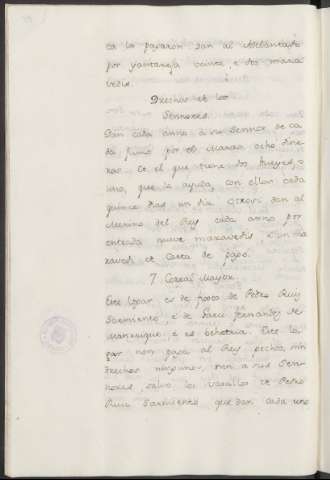 ca la pagaron dan al Adelantado
por yantareja veinte, e dos mara
vedis.
Drechos de los
Sennores.
Dan cada anno a su Sennor de ca
da fumo por el marzo ocho dine
ros. Et el que tiene dos bueyes, o
uno, que le ayuda con ellos cada
quince dias un dia. Otrosi dan al
Merino del Rey cada anno por
entrada nueve maravedis, e un ma
ravedi et Carta de pago.
7. Corral Mayor
Este logar es de fijos de Pedro Ruiz
Sarmiento, e de Garci Fernandez de
Manrrique, e es behetria. Este lo
gar non paga al Rey pechos, nin
drechos ningunos, nen a sus Sen-
nores, salvo los vasallos de Pedro
Ruiz Sarmiento que dan cada uno